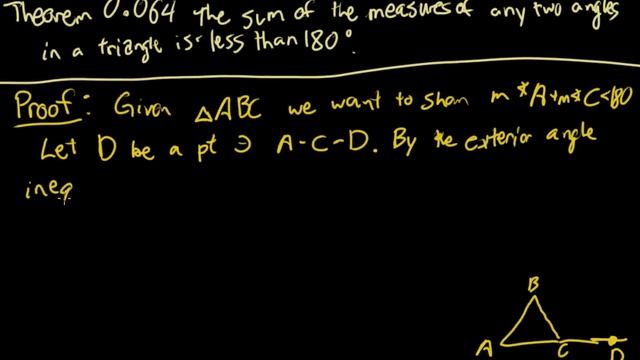 Theorem 0.064 The sum of the measures of any two angles
in a triangle is less than 180°.
Proof: Given △ABC we want to show m∢A+m∢C<180
Let D be a pt ∋ A-C-D. By the exterior angle
ineq
B
A C D